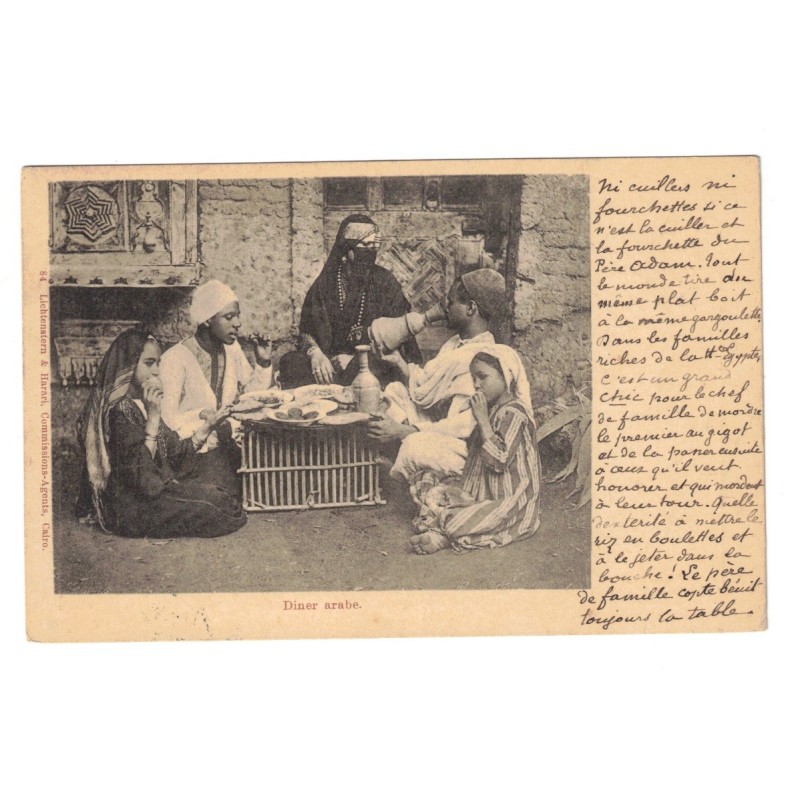 84 Lichtenstern & Harari, Commissions-Agents, Cairo.
Diner arabe.
Ni cuillers ni
fourchettes si ce
n'est la cuiller et
la fourchette du
Père Adam. Tout
le monde tire du
même plat boit
à la même gargoulette.
Dans les familles
riches de la Hte Egypte,
c'est un grand
chic pour le chef
de famille de mordre
le premier au gigot
et de la passer ensuite
à ceux qu'il veut
honorer et qui mordent
à leur tour. Quelle
dextérité à mettre le
riz en boulettes et
à le jeter dans la
bouche! Le père
de famille copte bénit
toujours la table.